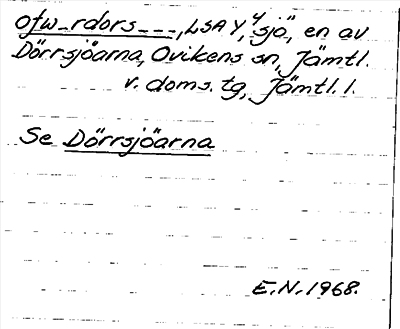 ofw_rdors___, LSA Y, "sjö", en av
Dörrsjöarna, Ovikens sn, Jämtl.
v. doms. tg, Jämtl. l.
Se Dörrsjöarna
E.N. 1968.